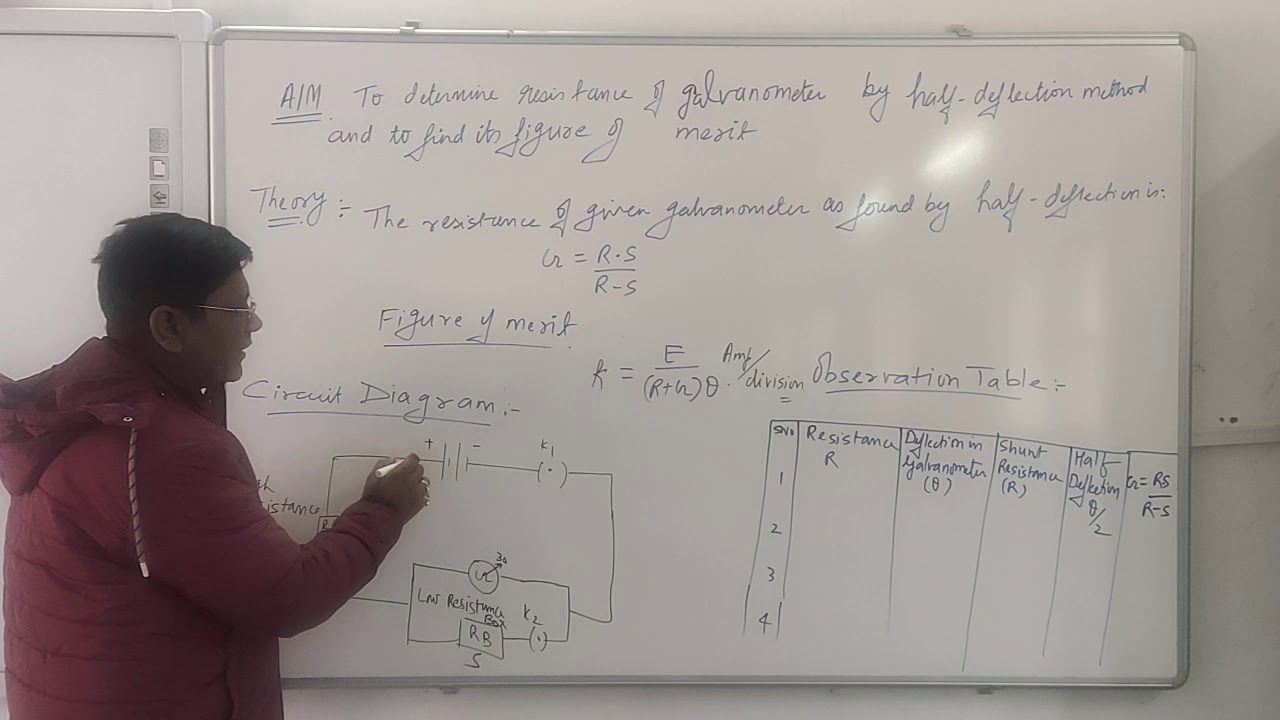 AIM To determine resistance of galvanometer by half-deflection method
and to find its figure of merit
Theory :- The resistance of given galvanometer as found by half-deflection is:
G = R.S
R-S
Figure of merit
k = E Amp/
(R+G)θ. division
Circuit Diagram:-
+ - K1
sistance
R
G 30
Low Resistance
Box K2
RB (·)
S
Observation Table:-
SNo Resistance R Deflection in Galvanometer (θ) Shunt Resistance (R) Half Deflection θ/2 G = RS/R-S
1
2
3
4